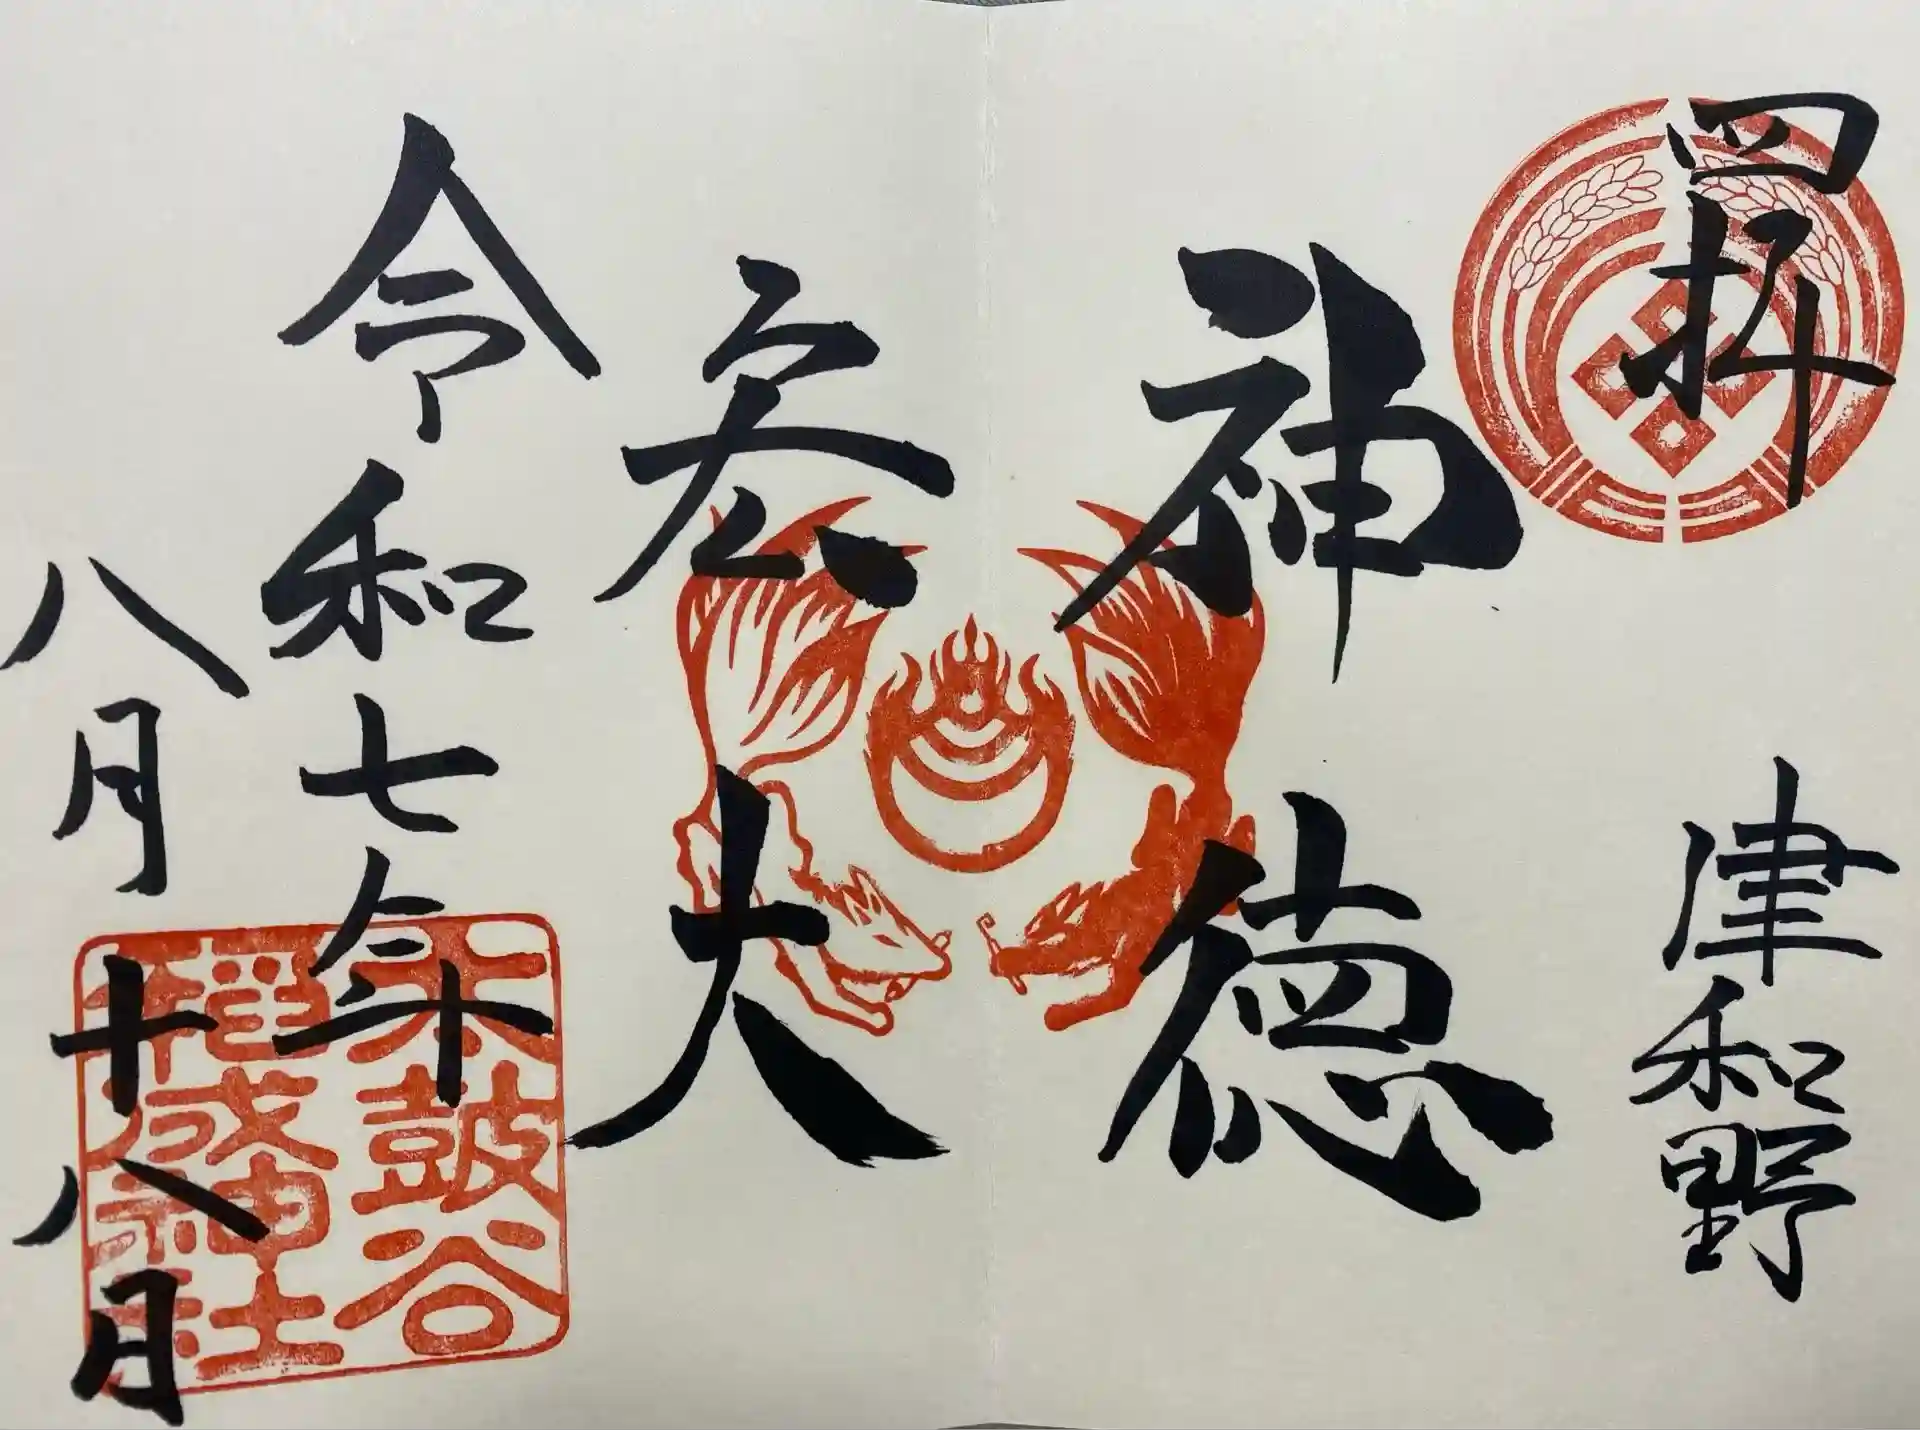 拝
津和野
神徳
宏大
令和七年
八月十八日
太皷谷
稲成神社